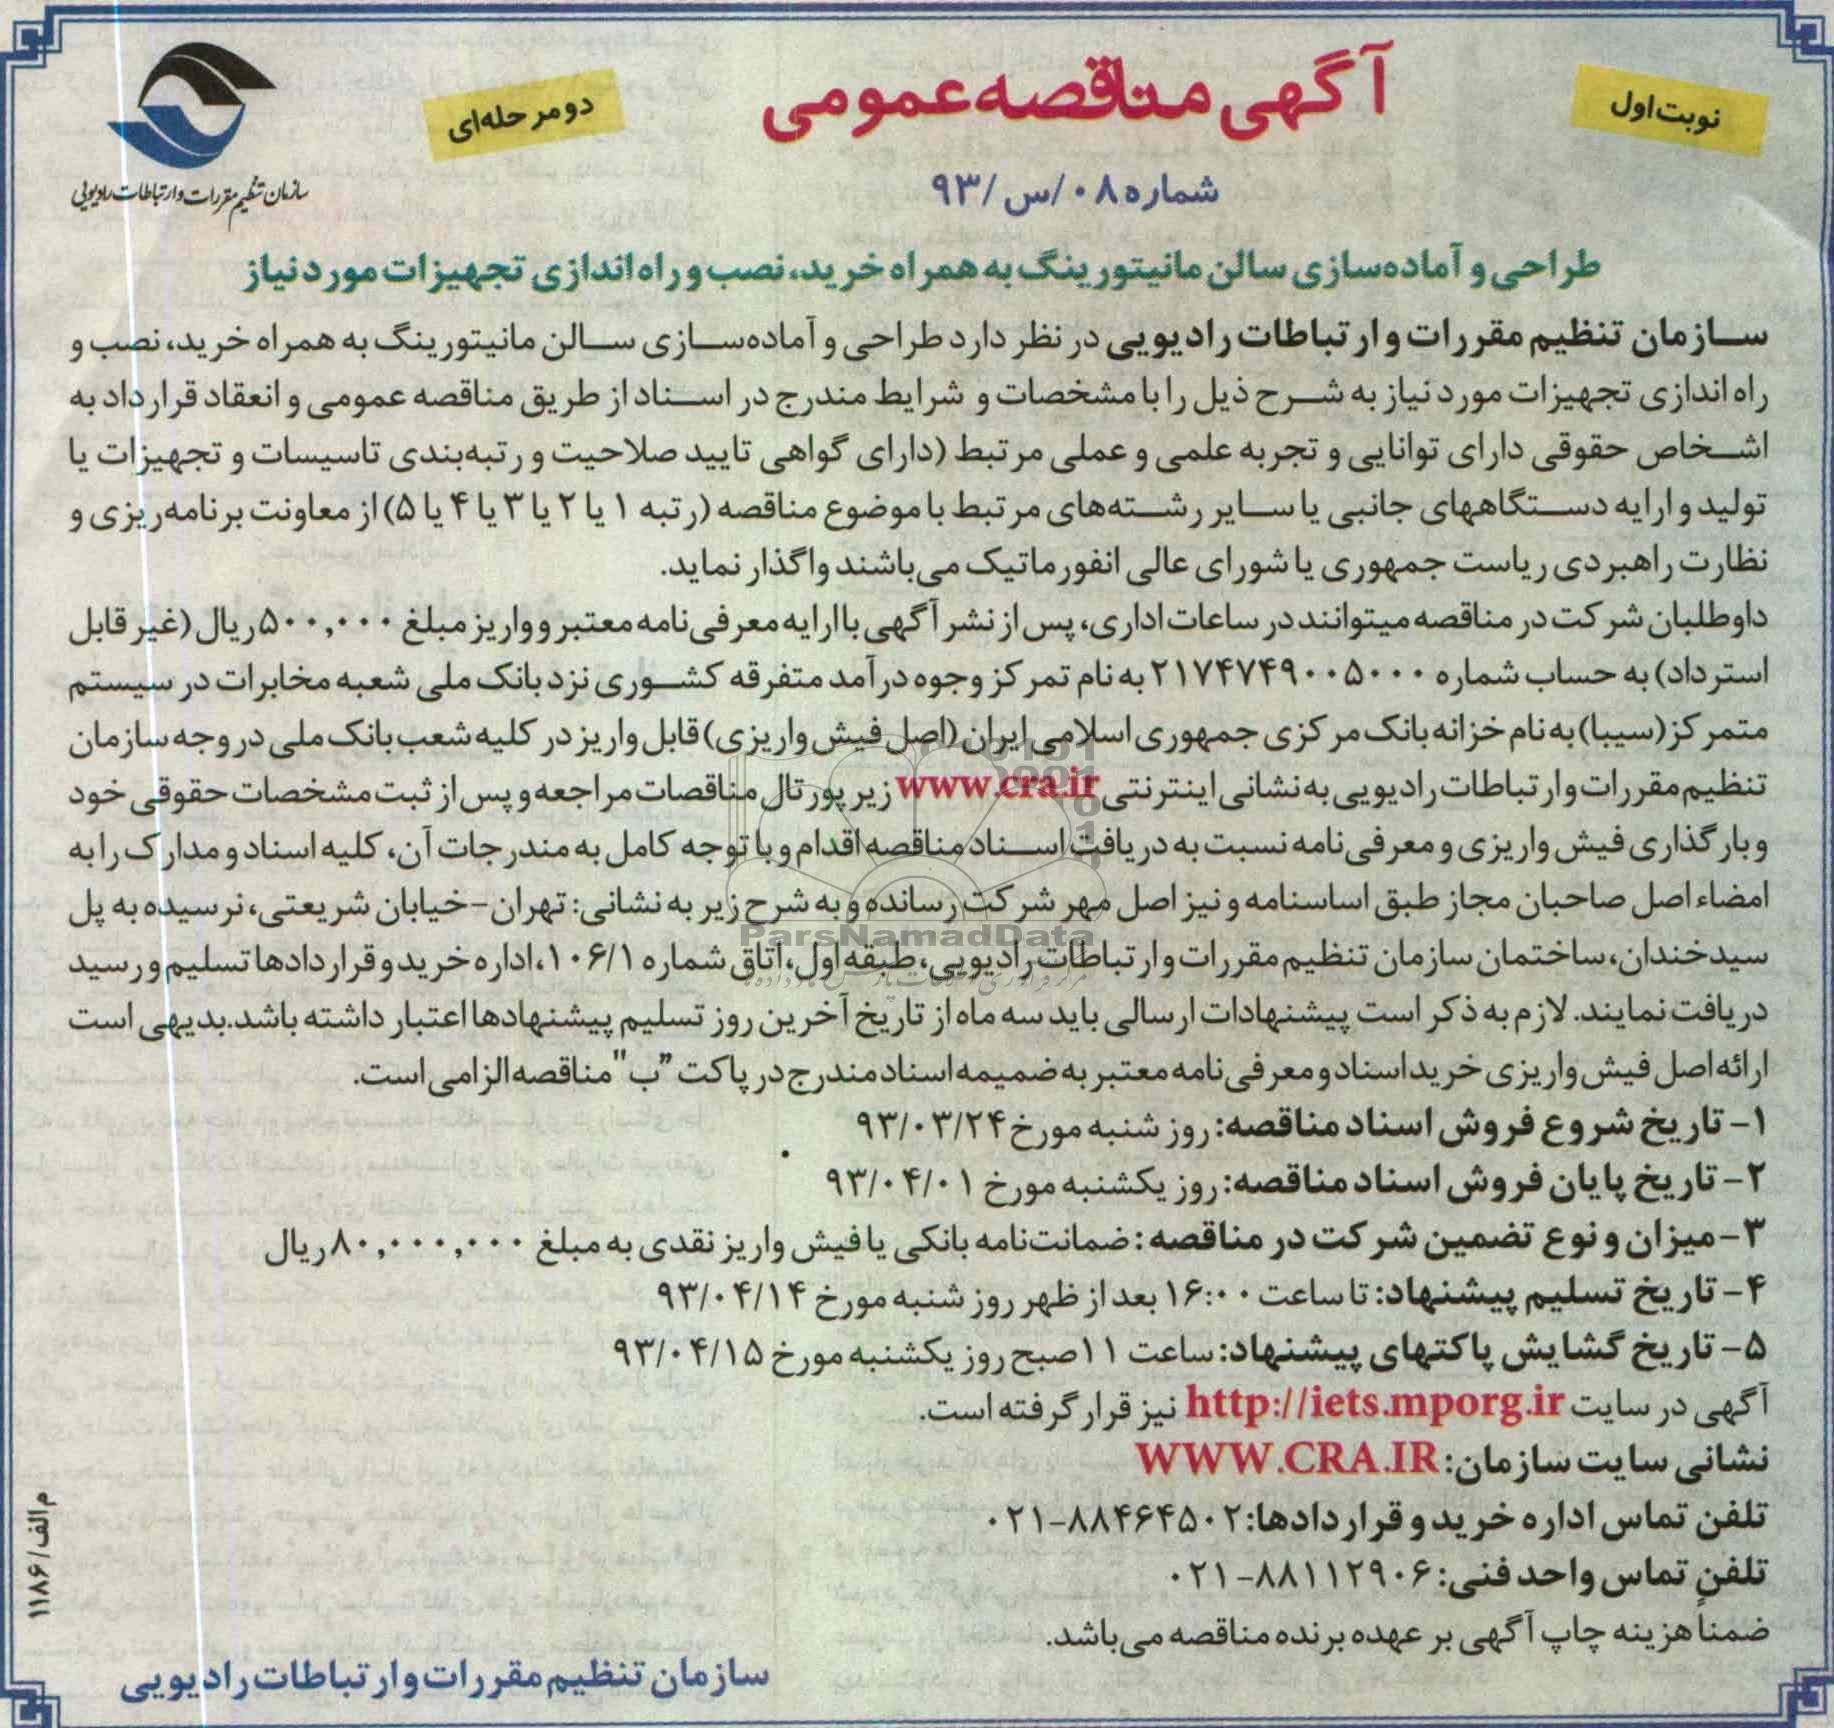 نوبت اول
آگهی مناقصه عمومی
دو مرحله‌ای
سازمان تنظیم مقررات و ارتباطات رادیویی
شماره ۰۸/س/۹۳
طراحی و آماده‌سازی سالن مانیتورینگ به همراه خرید، نصب و راه اندازی تجهیزات مورد نیاز
سازمان تنظیم مقررات و ارتباطات رادیویی در نظر دارد طراحی و آماده‌سازی سالن مانیتورینگ به همراه خرید، نصب و
راه اندازی تجهیزات مورد نیاز به شرح ذیل را با مشخصات و شرایط مندرج در اسناد از طریق مناقصه عمومی و انعقاد قرارداد به
اشخاص حقوقی دارای توانایی و تجربه علمی و عملی مرتبط (دارای گواهی تایید صلاحیت و رتبه‌بندی تاسیسات و تجهیزات یا
تولید و ارایه دستگاههای جانبی یا سایر رشته‌های مرتبط با موضوع مناقصه (رتبه ۱ یا ۲ یا ۳ یا ۴ یا ۵) از معاونت برنامه‌ریزی و
نظارت راهبردی ریاست جمهوری یا شورای عالی انفورماتیک می‌باشند واگذار نماید.
داوطلبان شرکت در مناقصه میتوانند در ساعات اداری، پس از نشر آگهی با ارایه معرفی‌نامه معتبر و واریز مبلغ ۵۰۰,۰۰۰ ریال (غیر قابل
استرداد) به حساب شماره ۲۱۷۴۷۴۹۰۰۵۰۰۰ به نام تمرکز وجوه درآمد متفرقه کشوری نزد بانک ملی شعبه مخابرات در سیستم
متمرکز (سیبا) به نام خزانه بانک مرکزی جمهوری اسلامی ایران (اصل فیش واریزی) قابل واریز در کلیه شعب بانک ملی در وجه سازمان
تنظیم مقررات و ارتباطات رادیویی به نشانی اینترنتی www.cra.ir زیر پورتال مناقصات مراجعه و پس از ثبت مشخصات حقوقی خود
و بارگذاری فیش واریزی و معرفی‌نامه نسبت به دریافت اسناد مناقصه اقدام و با توجه کامل به مندرجات آن، کلیه اسناد و مدارک را به
امضاء اصل صاحبان مجاز طبق اساسنامه و نیز اصل مهر شرکت رسانده و به شرح زیر به نشانی: تهران-خیابان شریعتی، نرسیده به پل
ParsNamadData
سیدخندان، ساختمان سازمان تنظیم مقررات و ارتباطات رادیویی، طبقه اول، اتاق شماره ۱۰۶/۱، اداره خرید و قراردادها تسلیم و رسید
دریافت نمایند. لازم به ذکر است پیشنهادات ارسالی باید سه ماه از تاریخ آخرین روز تسلیم پیشنهادها اعتبار داشته باشد.بدیهی است
ارائه اصل فیش واریزی خرید اسناد و معرفی‌نامه معتبر به ضمیمه اسناد مندرج در پاکت "ب" مناقصه الزامی است.
۱- تاریخ شروع فروش اسناد مناقصه: روز شنبه مورخ ۹۳/۰۳/۲۴
۲- تاریخ پایان فروش اسناد مناقصه: روز یکشنبه مورخ ۹۳/۰۴/۰۱
۳- میزان و نوع تضمین شرکت در مناقصه: ضمانت‌نامه بانکی یا فیش واریز نقدی به مبلغ ۸۰,۰۰۰,۰۰۰ ریال
۴- تاریخ تسلیم پیشنهاد: تا ساعت ۱۶:۰۰ بعد از ظهر روز شنبه مورخ ۹۳/۰۴/۱۴
۵- تاریخ گشایش پاکتهای پیشنهاد: ساعت ۱۱ صبح روز یکشنبه مورخ ۹۳/۰۴/۱۵
آگهی در سایت http://iets.mporg.ir نیز قرار گرفته است.
نشانی سایت سازمان: WWW.CRA.IR
تلفن تماس اداره خرید و قراردادها: ۸۸۴۶۴۵۰۲-۰۲۱
تلفن تماس واحد فنی: ۸۸۱۱۲۹۰۶-۰۲۱
ضمناً هزینه چاپ آگهی بر عهده برنده مناقصه می‌باشد.
سازمان تنظیم مقررات و ارتباطات رادیویی
م الف/۱۱۸۶